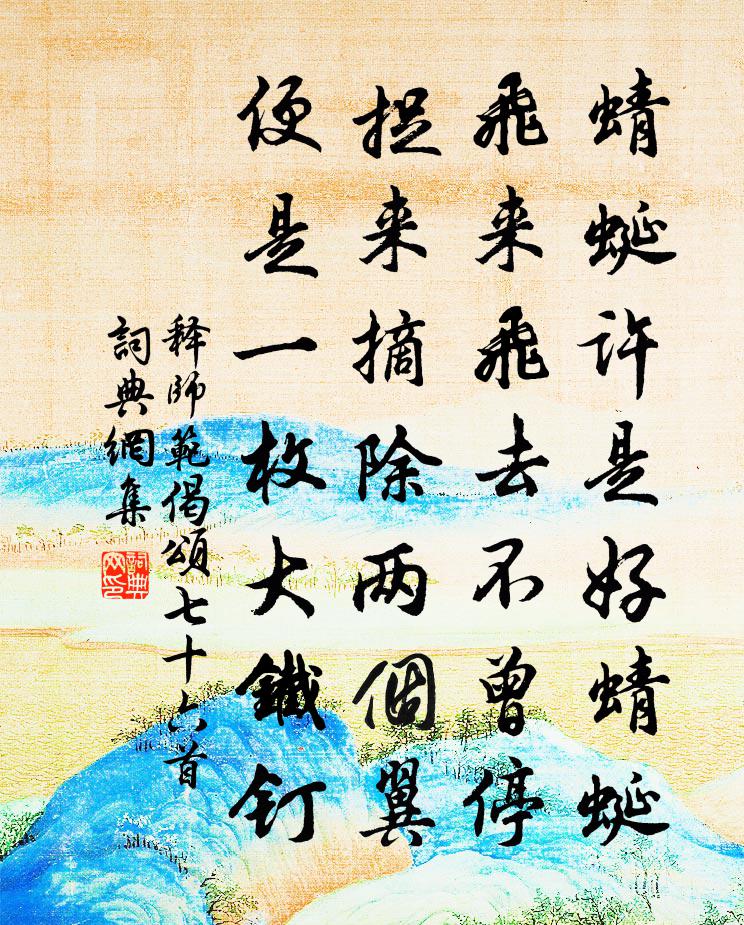 蜻蜓许是好蜻蜓
飛来飛去不曾停
捉来摘除两個翼
便是一枚大鐵釘
释師範偈頌七十六首
詞典網集
詞典